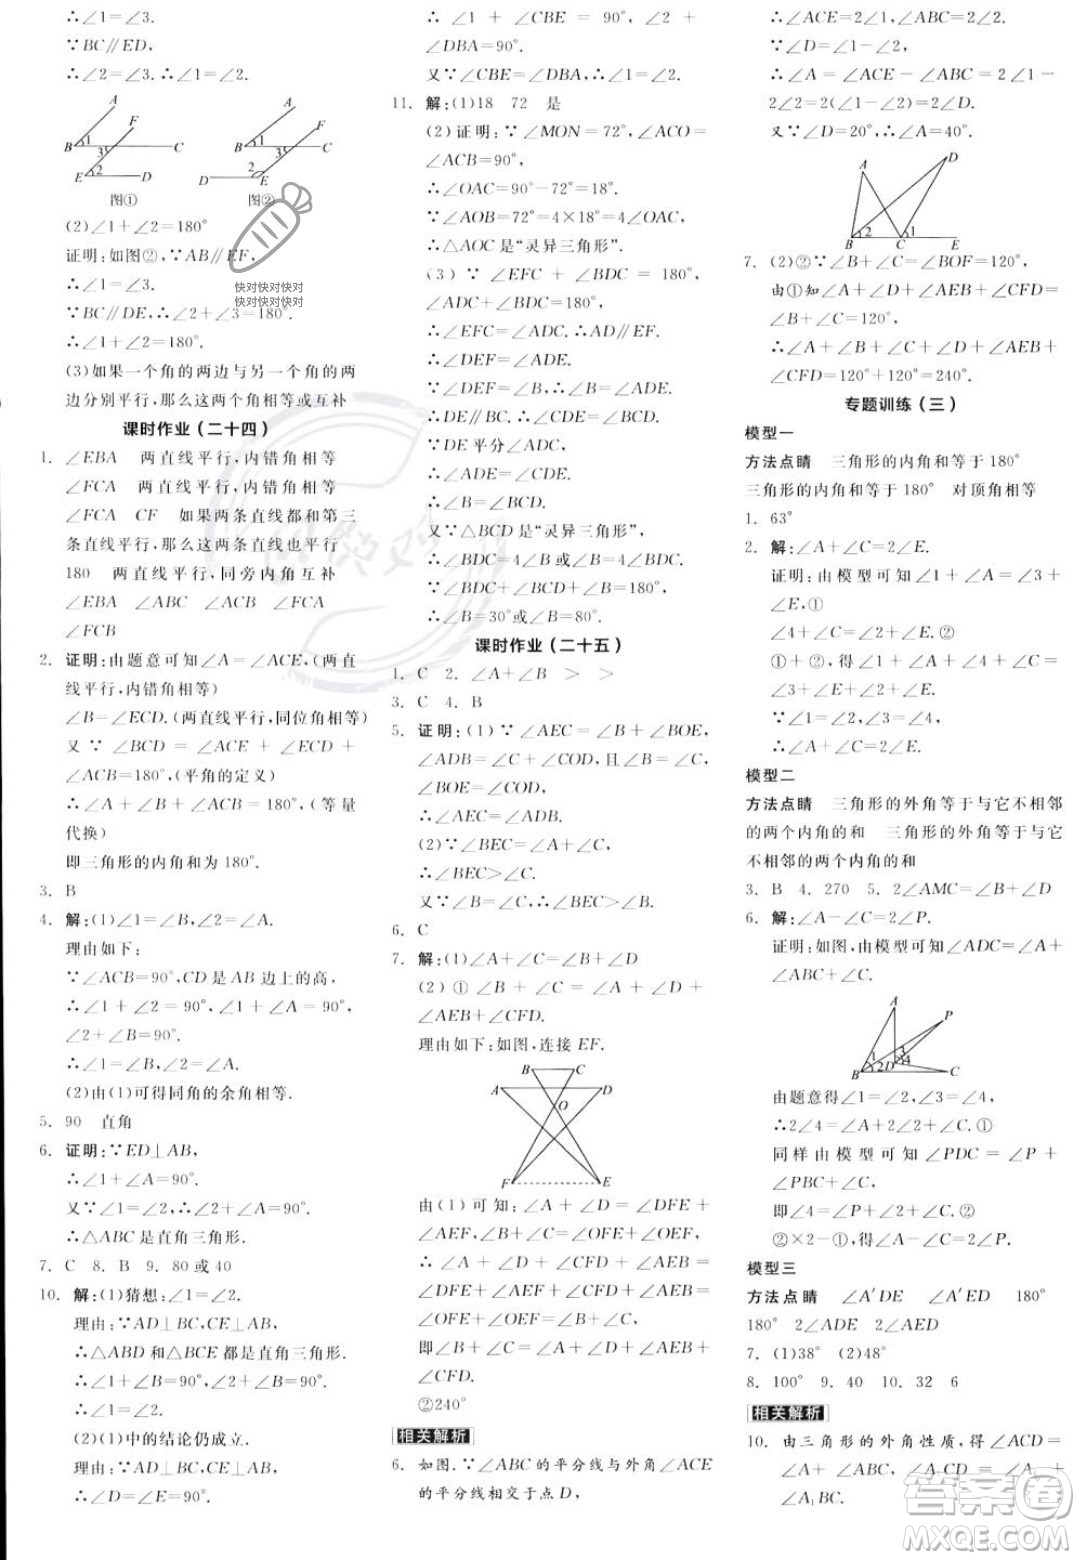 ∴∠1=∠3.
∵BC∥ED,
∴∠2=∠3.∴∠1=∠2.
A
F
B 1 3 C
2
E D
图①
A
F
B 1 3 C
2
D E
图②
(2)∠1+∠2=180°
证明:如图②,∵AB∥EF,
∴∠1=∠3.
∵BC∥DE,∴∠2+∠3=180°.
∴∠1+∠2=180°.
快对快对快对
快对快对快对
(3)如果一个角的两边与另一个角的两
边分别平行,那么这两个角相等或互补
课时作业(二十四)
1. ∠EBA 两直线平行,内错角相等
∠FCA 两直线平行,内错角相等
∠FCA CF 如果两条直线都和第三
条直线平行,那么这两条直线也平行
180 两直线平行,同旁内角互补
∠EBA ∠ABC ∠ACB ∠FCA
∠FCB
2. 证明:由题意可知∠A=∠ACE,(两直
线平行,内错角相等)
∠B=∠ECD.(两直线平行,同位角相等)
又∵∠BCD=∠ACE+∠ECD+
∠ACB=180°,(平角的定义)
∴∠A+∠B+∠ACB=180°,(等量
代换)
即三角形的内角和为180°.
3. B
4. 解:(1)∠1=∠B,∠2=∠A.
理由如下:
∵∠ACB=90°,CD是AB边上的高,
∴∠1+∠2=90°,∠1+∠A=90°,
∠2+∠B=90°.
∴∠1=∠B,∠2=∠A.
(2)由(1)可得同角的余角相等.
5. 90 直角
6. 证明:∵ED⊥AB,
∴∠1+∠A=90°.
又∵∠1=∠2,∴∠2+∠A=90°.
∴△ABC是直角三角形.
7. C 8. B 9. 80或40
10. 解:(1)猜想:∠1=∠2.
理由:∵AD⊥BC,CE⊥AB,
∴△ABD和△BCE都是直角三角形.
∴∠1+∠B=90°,∠2+∠B=90°.
∴∠1=∠2.
(2)(1)中的结论仍成立.
理由:∵AD⊥BC,CE⊥AB,
∴∠D=∠E=90°.
∴∠1+∠CBE=90°,∠2+
∠DBA=90°.
又∵∠CBE=∠DBA,∴∠1=∠2.
11. 解:(1)18 72 是
(2)证明:∵∠MON=72°,∠ACO=
∠ACB=90°,
∴∠OAC=90°-72°=18°.
∵∠AOB=72°=4×18°=4∠OAC,
∴△AOC是“灵异三角形”.
(3)∵∠EFC+∠BDC=180°,
∠ADC+∠BDC=180°,
∴∠EFC=∠ADC.∴AD∥EF.
∴∠DEF=∠ADE.
∵∠DEF=∠B,∴∠B=∠ADE.
∴DE∥BC.∴∠CDE=∠BCD.
∵DE平分∠ADC,
∴∠ADE=∠CDE.
∴∠B=∠BCD.
又∵△BCD是“灵异三角形”,
∴∠BDC=4∠B或∠B=4∠BDC.
∵∠BDC+∠BCD+∠B=180°,
∴∠B=30°或∠B=80°.
课时作业(二十五)
1. C 2. ∠A+∠B > >
3. C 4. B
5. 证明:(1)∵∠AEC=∠B+∠BOE,
∠ADB=∠C+∠COD,且∠B=∠C,
∠BOE=∠COD,
∴∠AEC=∠ADB.
(2)∵∠BEC=∠A+∠C,
∴∠BEC>∠C.
又∵∠B=∠C,∴∠BEC>∠B.
6. C
7. 解:(1)∠A+∠B=∠C+∠D
(2)①∠B+∠C+∠A+∠D=
∠AEB+∠CFD.
理由如下:如图,连接EF.
B C
A D
O
F E
由(1)可知:∠A+∠D=∠DFE+
∠AEF,∠B+∠C=∠OFE+∠OEF,
∴∠A+∠D+∠B+∠C=
∠DFE+∠AEF+∠CFD+
∠OFE+∠OEF=∠AEB+∠CFD,
即∠B+∠C+∠A+∠D=∠AEB+
∠CFD.
②240°
相关解析
6. 如图.∵∠ABC的平分线与外角∠ACE
的平分线相交于点D,
∴∠ACE=2∠2,∠ABC=2∠1.
∵∠D=∠2-∠1,
∴∠A=∠ACE-∠ABC=2∠1-
2∠2=2(∠2-∠1)=2∠D.
又∵∠D=20°,∴∠A=40°.
A D
1
2 1 2
B C E
7. (2)②∵∠B+∠C=∠BOF=120°,
由①知∠A+∠D+∠AEB+∠CFD=
∠B+∠C=120°,
∴∠A+∠B+∠C+∠D+∠AEB+
∠CFD=120°+120°=240°.
专题训练(三)
模型一
方法点睛 三角形的内角和等于180°
三角形的内角和等于180° 对顶角相等
1. 63°
2. 解:∠A+∠C=2∠E.
证明:由模型可知∠1+∠A=∠3+
∠E,①
∠4+∠C=∠2+∠E.②
①+②,得∠1+∠A+∠4+∠C=
∠3+∠E+∠2+∠E.
∵∠1=∠2,∠3=∠4,
∴∠A+∠C=2∠E.
模型二
方法点睛 三角形的外角等于与它不相邻
的两个内角的和 三角形的外角等于与它
不相邻的两个内角的和
3. B 4. 270 5. 2∠AMC=∠A+∠D
6. 解:∠A-∠C=2∠P.
证明:如图,由模型可知∠ADC=∠A+
∠ABC+∠C.
A
P
1 3
2 D 4
B C
由题意得∠1=∠2,∠3=∠4,
∴2∠4=∠A+2∠2+∠C.①
同样由模型可知∠PDC=∠P+
∠PBC+∠C,
即∠4=∠P+∠2+∠C.②
②×2-①,得∠A-∠C=2∠P.
模型三
方法点睛 ∠A′DE ∠A′ED 180°
180° 2∠ADE 2∠AED
7. (1)38° (2)48°
8. 100° 9. 40 10. 32 6
相关解析
10. 由三角形的外角性质,得∠ACD=
∠A+∠ABC,∠A₁CD=∠A₁+
∠A₁BC.
答案圈
MXQE.COM